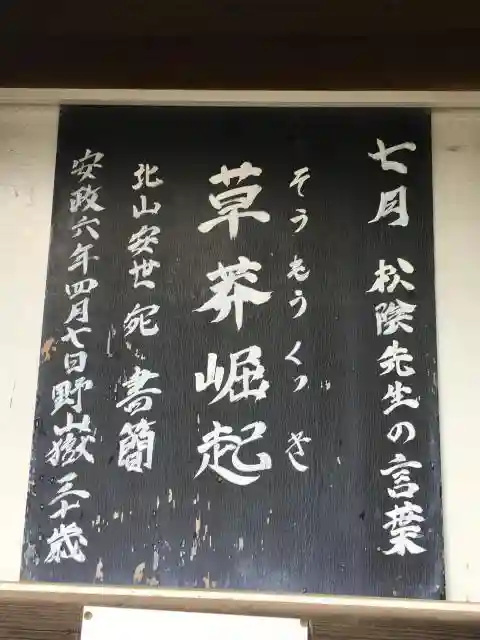 七月 松陰先生の言葉
そうもうくっき
草莽崛起
北山安世宛 書簡
安政六年四月七日野山獄三十歳